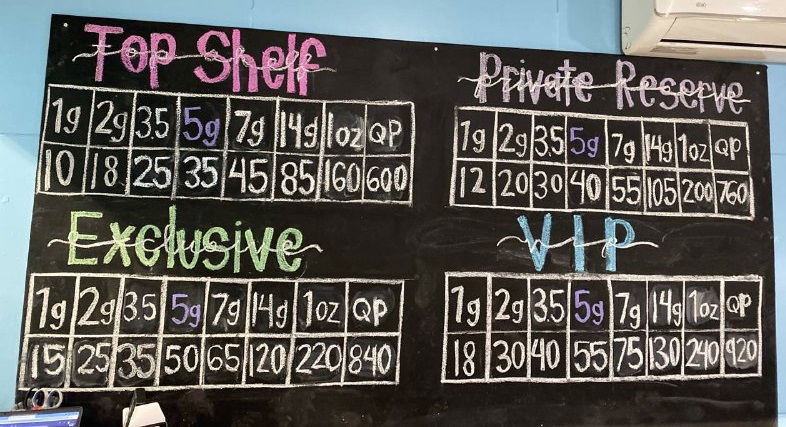 Top Shelf
1g 2g 3.5 5g 7g 14g 1oz QP
10 18 25 35 45 85 160 600
Private Reserve
1g 2g 3.5 5g 7g 14g 1oz QP
12 20 30 40 55 105 200 760
Exclusive
1g 2g 3.5 5g 7g 14g 1oz QP
15 25 35 50 65 120 220 840
VIP
1g 2g 3.5 5g 7g 14g 1oz QP
18 30 40 55 75 130 240 920